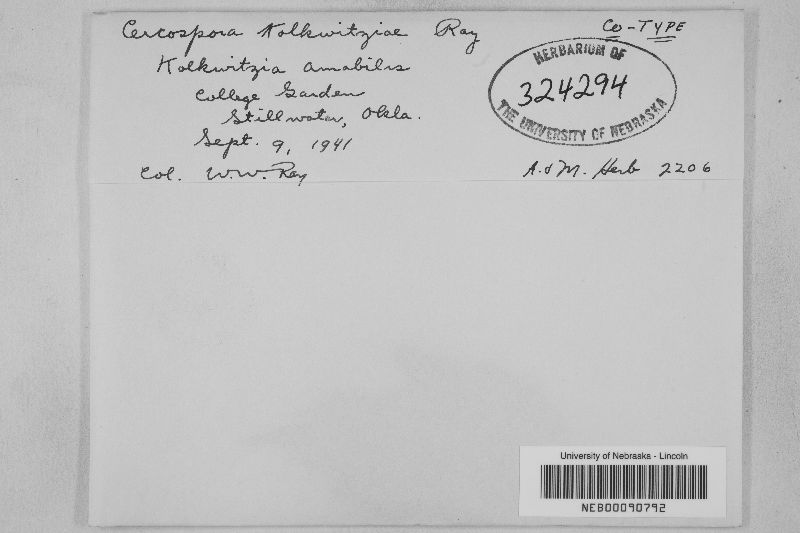 Cercospora Kolkwitziae Ray
Co-TYPE
Kolkwitzia amabilis
College Garden
Stillwater, Okla.
Sept. 9, 1941
Col. W.W. Ray
HERBARIUM OF
324294
THE UNIVERSITY OF NEBRASKA
A. & M. Herb 2206
University of Nebraska - Lincoln
NEB00090792